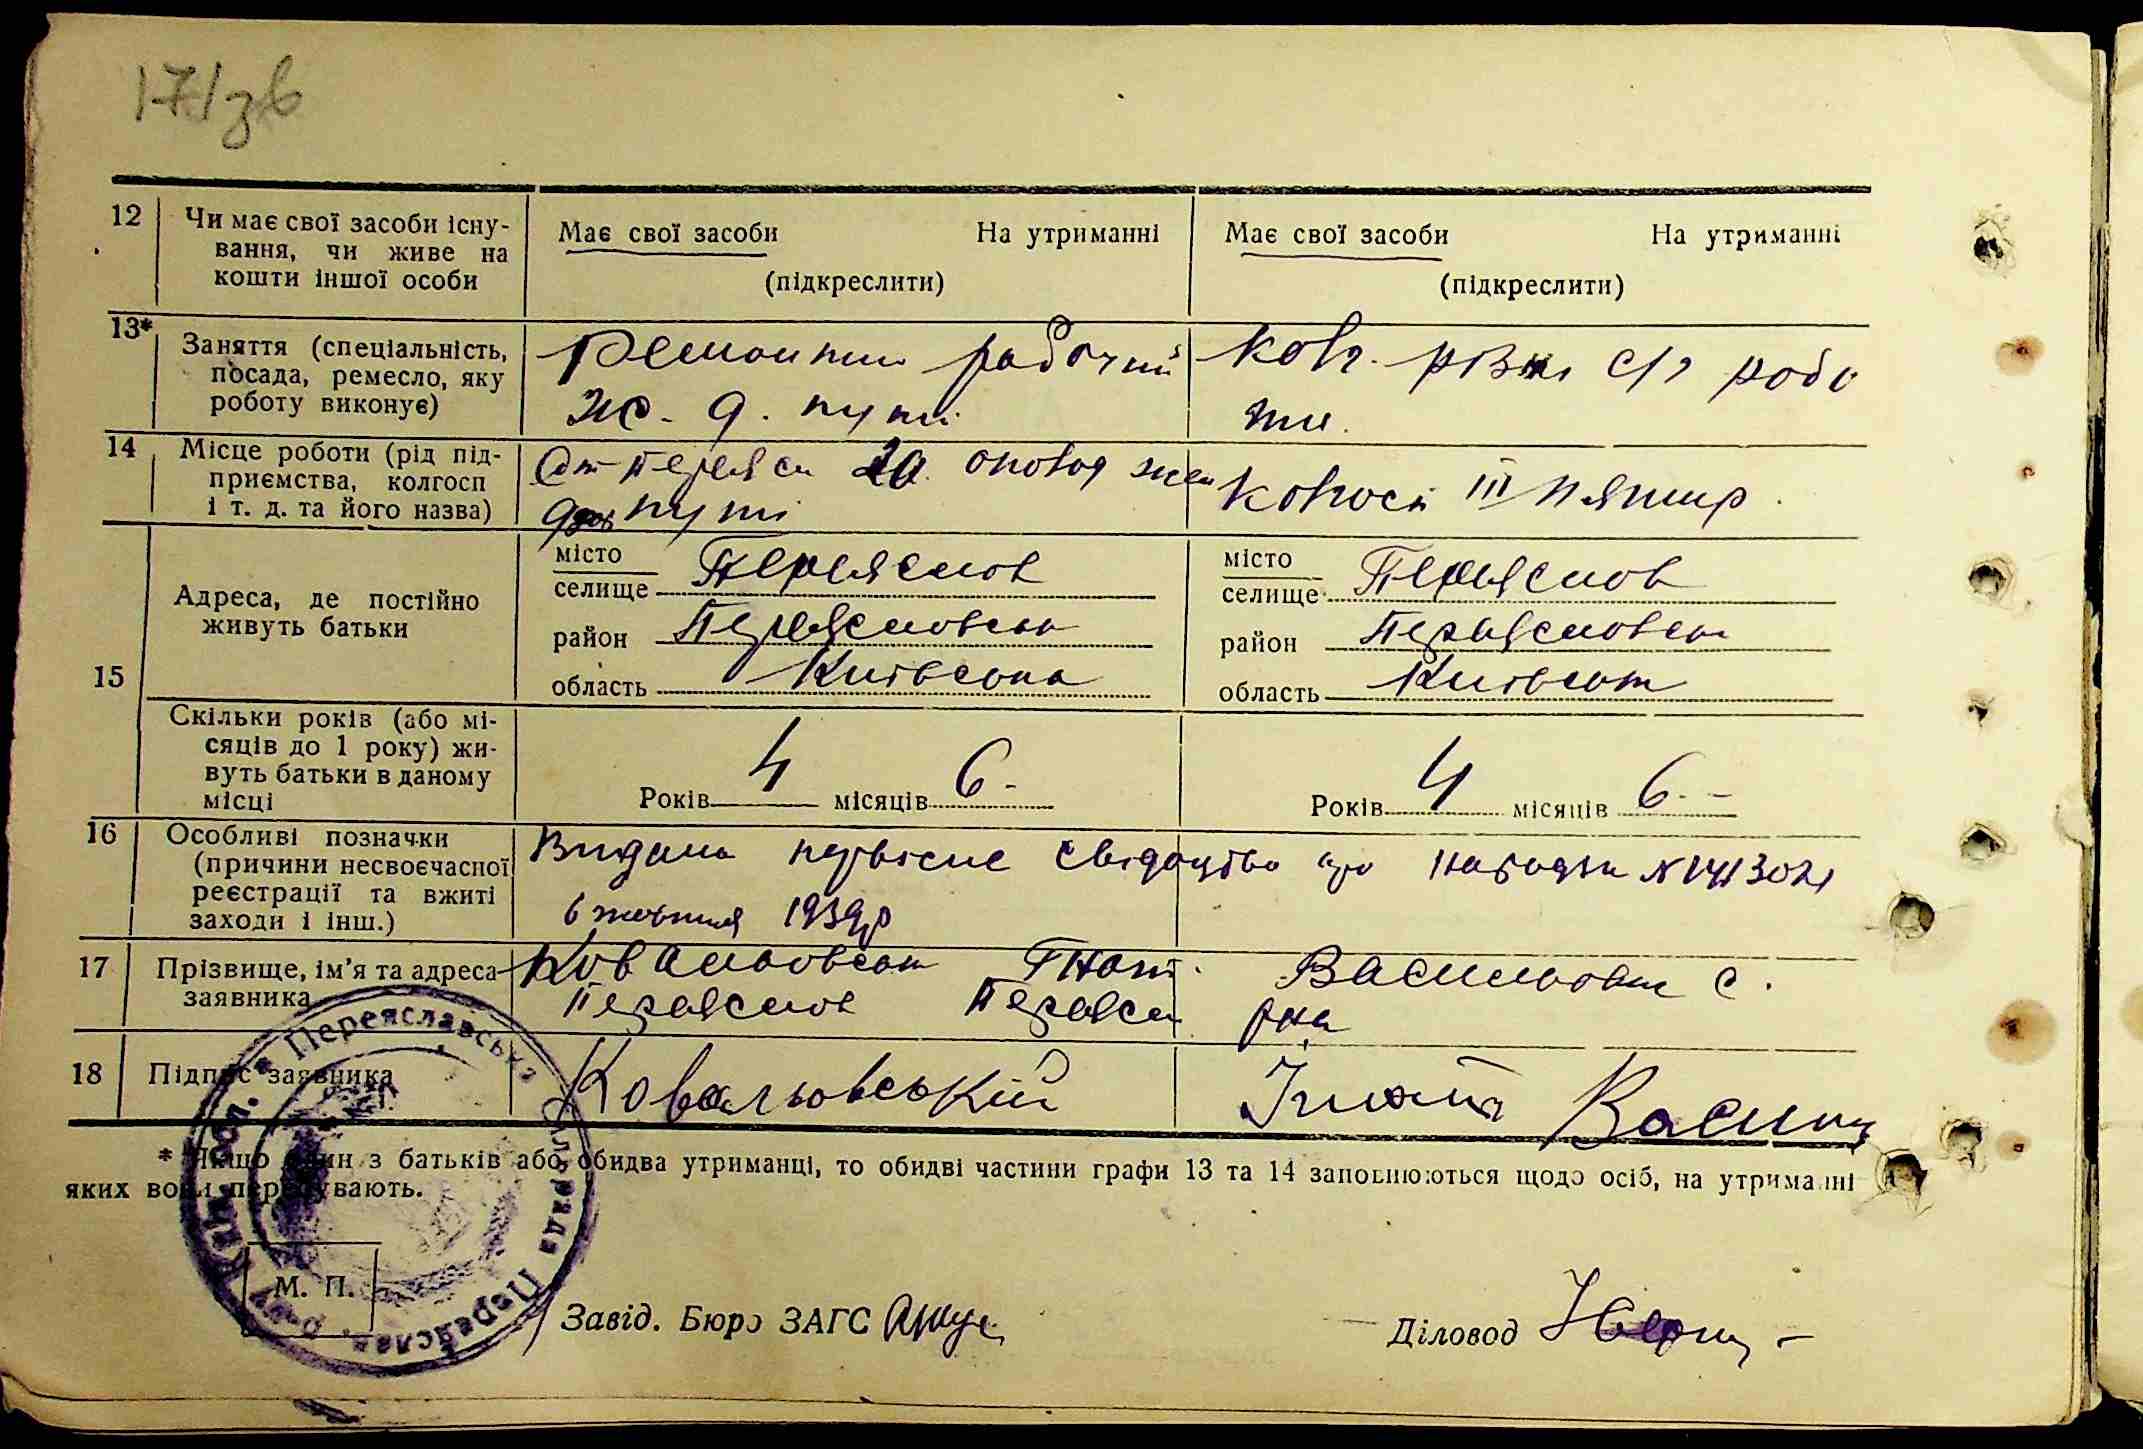 171зв
12 Чи має свої засоби існу- Має свої засоби На утриманні Має свої засоби На утриманні
вання, чи живе на
кошти іншої особи (підкреслити) (підкреслити)
13* Заняття (спеціальність, рабочий колг. різні с/г робо
посада, ремесло, яку
роботу виконує) ж. д. путі ти.
14 Місце роботи (рід під-
приємства, колгосп колгосп III
і т. д. та його назва) путі
15 Адреса, де постійно живуть батьки
місто Переяслов місто Переяслов
селище селище
район Переясловськ район Переясловськ
область Київська область Київськ
Скільки років (або мі-
сяців до 1 року) жи-
вуть батьки в даному
місці Років 4 місяців 6 - Років 4 місяців 6 -
16 Особливі позначки Видано первісне свідоцтво про народжен №
(причини несвоєчасної
реєстрації та вжиті
заходи і інш.) 6 жовтня 1939р
17 Прізвище, ім'я та адреса Ковальовськ Гнат Васильович с.
заявника Переяслов Переясл р-на
18 Підпис заявника Ковальовський Ігнат
* Якщо один з батьків або обидва утриманці, то обидві частини графи 13 та 14 заповнюються щодо осіб, на утриманні
яких вони перебувають.
М. П.
Завід. Бюро ЗАГС
Діловод
Переяславська р-ну Київ. обл.